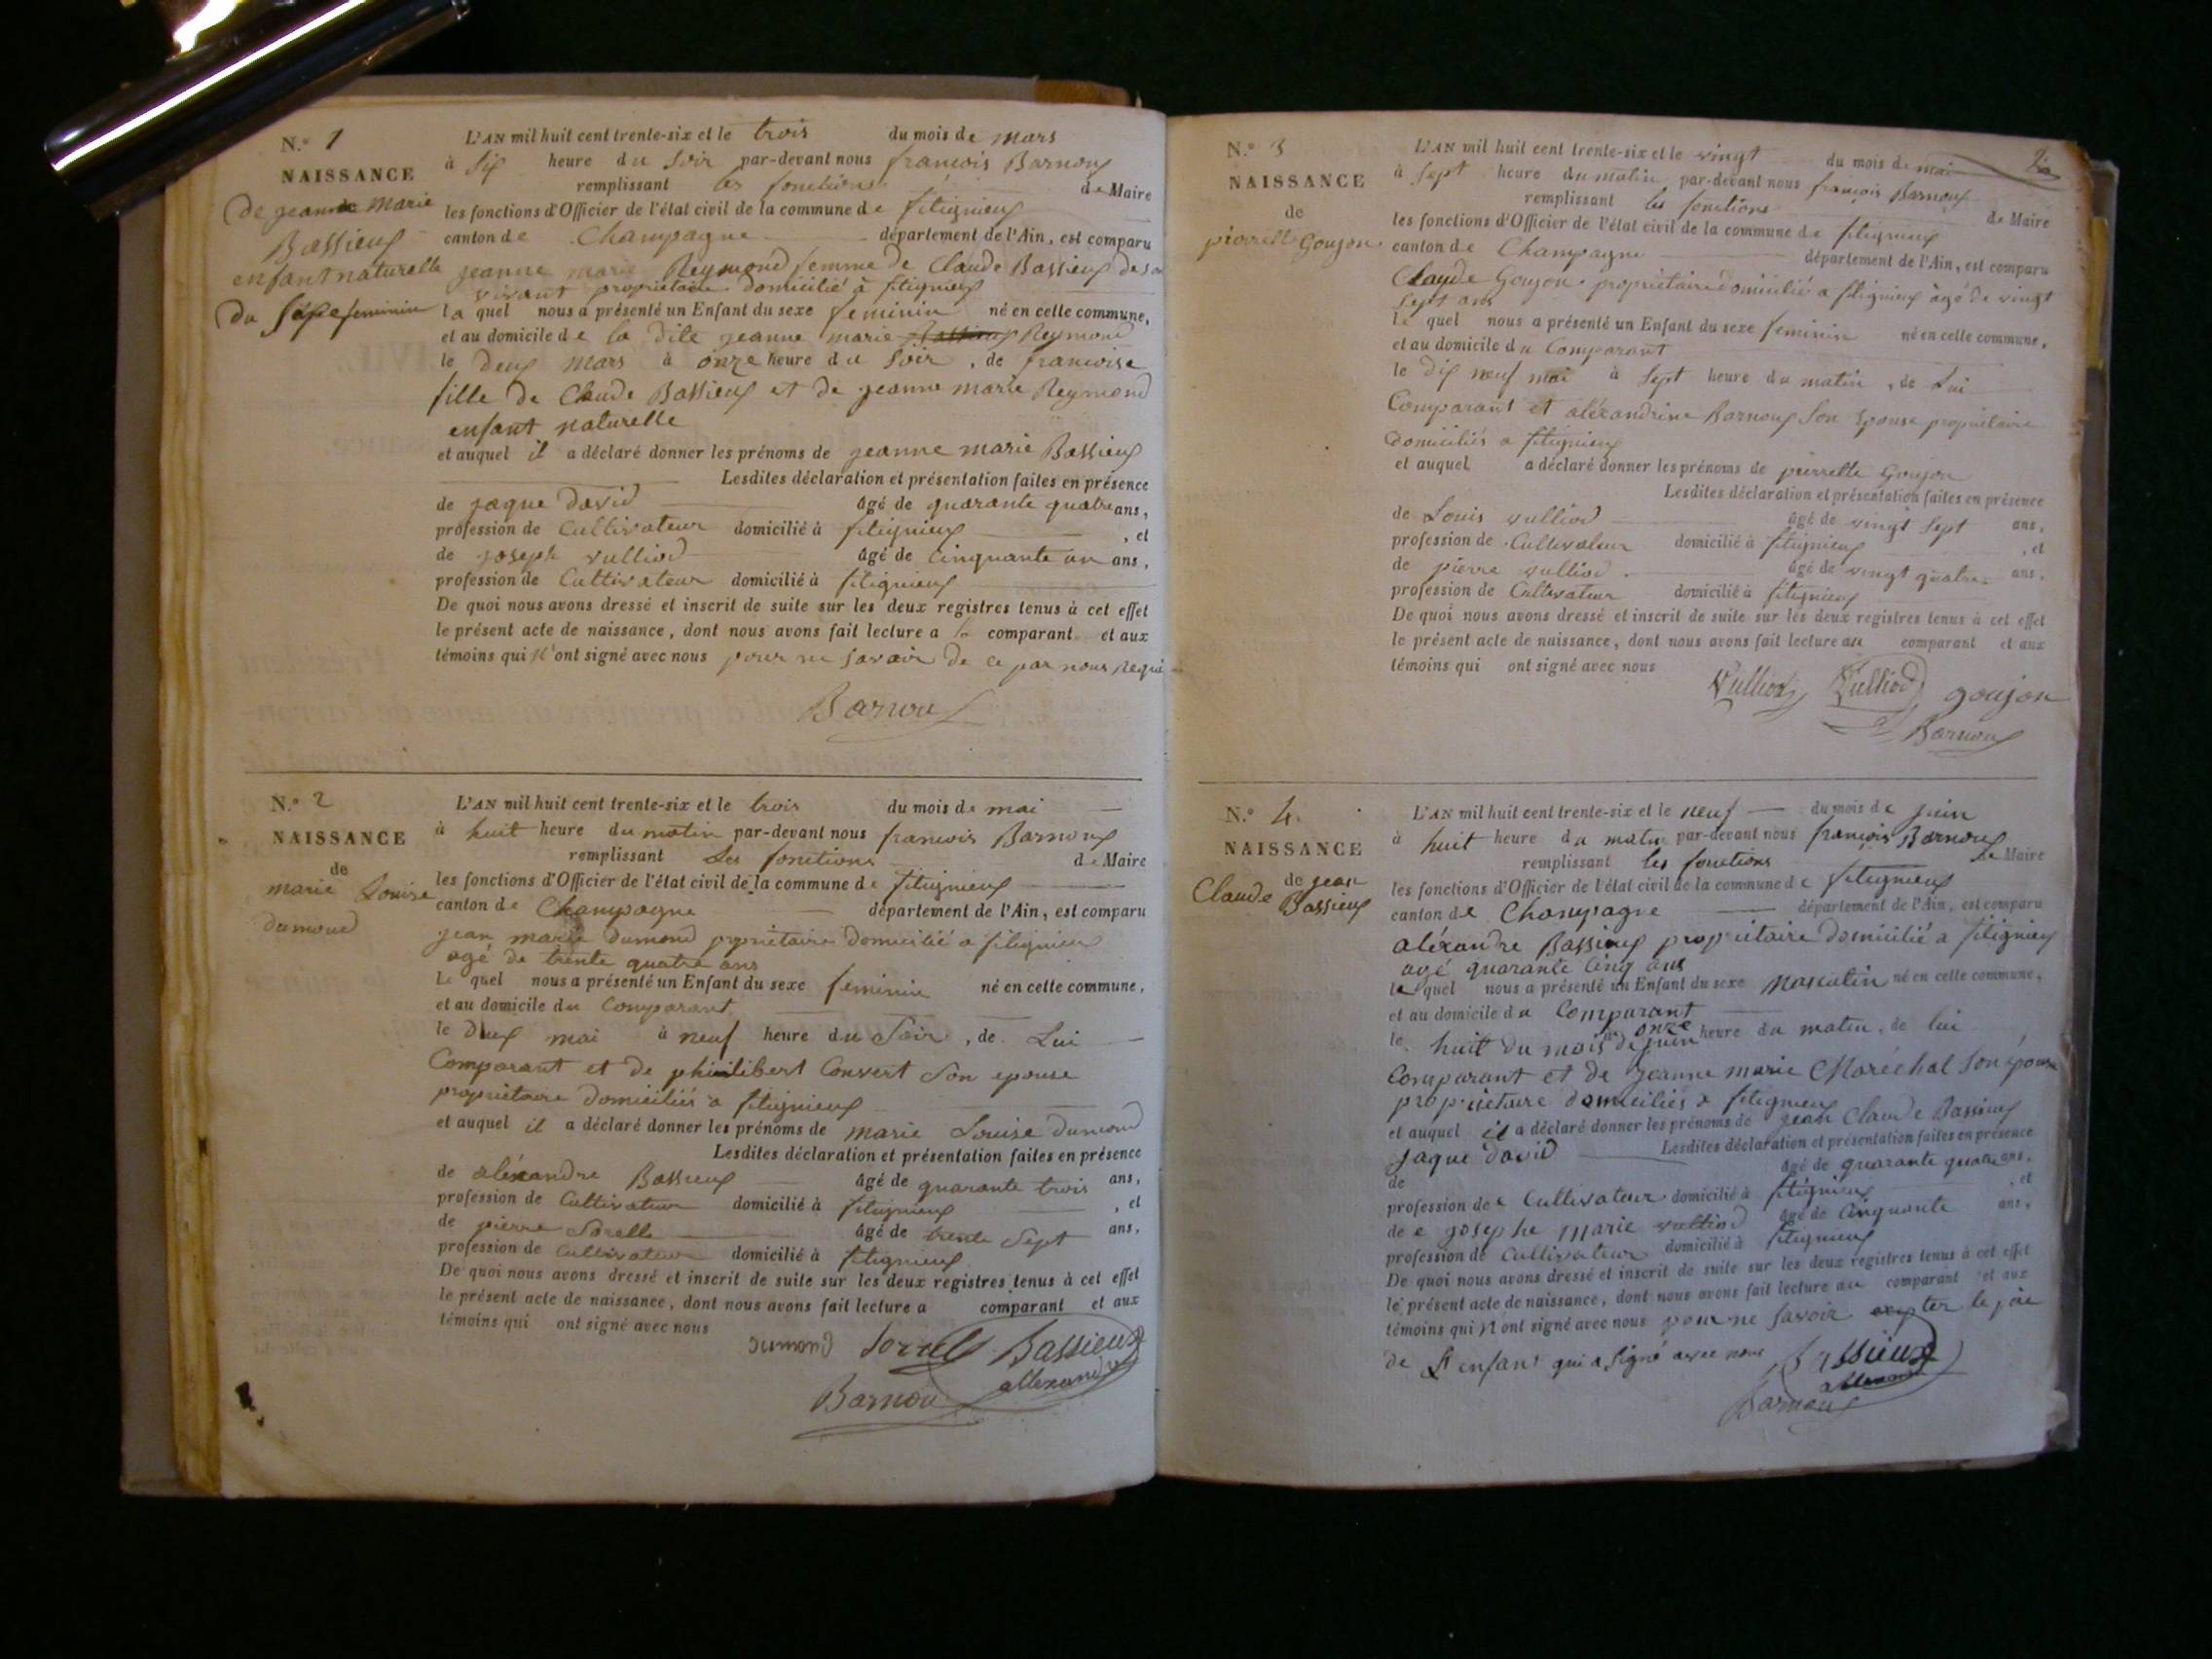 N.° 1
NAISSANCE
De jeanne Marie
Bassieux
enfant naturelle
Du Sexe feminin
L'AN mil huit cent trente-six et le trois du mois de mars
à Six heure du Soir par-devant nous francois Barnoux
remplissant les fonctions de Maire
les fonctions d'Officier de l'état civil de la commune de fitignieux
canton de Champagne département de l'Ain, est comparu
jeanne marie Reymond femme de Claude Bassieux de son
vivant propriétaire domicilié à fitignieux
la quel nous a présenté un Enfant du sexe feminin né en cette commune,
et au domicile de la Dite jeanne marie Reymond
le Deux mars à onze heure du Soir, de francoise
fille de Claude Bassieux et de jeanne marie Reymond
enfant naturelle
et auquel il a déclaré donner les prénoms de jeanne marie Bassieux
Lesdites déclaration et présentation faites en présence
de jaque David âgé de quarante quatre ans,
profession de Cultivateur domicilié à fitignieux, et
de joseph vulliod âgé de Cinquante un ans,
profession de Cultivateur domicilié à fitignieux
De quoi nous avons dressé et inscrit de suite sur les deux registres tenus à cet effet
le présent acte de naissance, dont nous avons fait lecture a la comparant et aux
témoins qui n'ont signé avec nous pour ne savoir de ce par nous Requi
Barnoux
N.° 2
NAISSANCE
de
marie Louise
dumond
L'AN mil huit cent trente-six et le trois du mois de mai
à huit heure du matin par-devant nous francois Barnoux
remplissant Les fonctions de Maire
les fonctions d'Officier de l'état civil de la commune de fitignieux
canton de Champagne département de l'Ain, est comparu
jean marie dumond propriétaire domicilié a fitignieux
agé de trente quatre ans
Le quel nous a présenté un Enfant du sexe feminin né en cette commune,
et au domicile du Comparant
le Deux mai à neuf heure du Soir, de Lui
Comparant et de philibert Convert Son epouse
propriétaire domiciliés a fitignieux
et auquel il a déclaré donner les prénoms de marie Louise dumond
Lesdites déclaration et présentation faites en présence
de aléxandre Bassieux âgé de quarante trois ans,
profession de Cultivateur domicilié à fitignieux, et
de pierre Sorelle âgé de trente Sept ans,
profession de Cultivateur domicilié à fitignieux
De quoi nous avons dressé et inscrit de suite sur les deux registres tenus à cet effet
le présent acte de naissance, dont nous avons fait lecture a comparant et aux
témoins qui ont signé avec nous
Dumond Sorelle Bassieux
allexandre
Barnoux
N.° 3
NAISSANCE
de
pierrette Goujon
L'AN mil huit cent trente-six et le vingt du mois de mai
à Sept heure du matin par-devant nous françois Barnoux
remplissant les fonctions de Maire
les fonctions d'Officier de l'état civil de la commune de fitignieux
canton de Champagne département de l'Ain, est comparu
Claude Goujon propriétaire domicilié a fitignieux âgé de vingt
Sept ans
Le quel nous a présenté un Enfant du sexe feminin né en cette commune,
et au domicile du Comparant
le Dix neuf mai à Sept heure du matin, de Lui
Comparant et aléxandrine Barnoux Son Epouse propriétaire
domiciliés a fitignieux
et auquel a déclaré donner les prénoms de pierrette Goujon
Lesdites déclaration et présentation faites en présence
de Louis vulliod âgé de vingt Sept ans,
profession de Cultivateur domicilié à fitignieux, et
de pierre vulliod âgé de vingt quatre ans,
profession de Cultivateur domicilié à fitignieux
De quoi nous avons dressé et inscrit de suite sur les deux registres tenus à cet effet
le présent acte de naissance, dont nous avons fait lecture au comparant et aux
témoins qui ont signé avec nous
Vulliod Vulliod goujon
Barnoux
N.° 4.
NAISSANCE
de jean
Claude Bassieux
L'AN mil huit cent trente-six et le neuf du mois de juin
à huit heure du matin par-devant nous françois Barnoux
remplissant les fonctions de Maire
les fonctions d'Officier de l'état civil de la commune de fitignieux
canton de Champagne département de l'Ain, est comparu
aléxandre Bassieux propriétaire domicilié a fitignieux
agé quarante Cinq ans
le quel nous a présenté un Enfant du sexe Masculin né en cette commune,
et au domicile du Comparant
le huit du mois de juin onze heure du matin, de lui
Comparant et de jeanne marie Maréchal Son épouse
propriétaire domiciliés a fitignieux
et auquel il a déclaré donner les prénoms de jean Claude Bassieux
Lesdites déclaration et présentation faites en présence
jaque david âgé de quarante quatre ans,
de
profession de Cultivateur domicilié à fitignieux, et
de josephe marie vulliod âgé de Cinquante ans,
profession de Cultivateur domicilié à fitignieux
De quoi nous avons dressé et inscrit de suite sur les deux registres tenus à cet effet
le présent acte de naissance, dont nous avons fait lecture au comparant et aux
témoins qui n ont signé avec nous pour ne savoir le
de L enfant qui a Signé avec nous Bassieux
allexandre
Barnoux